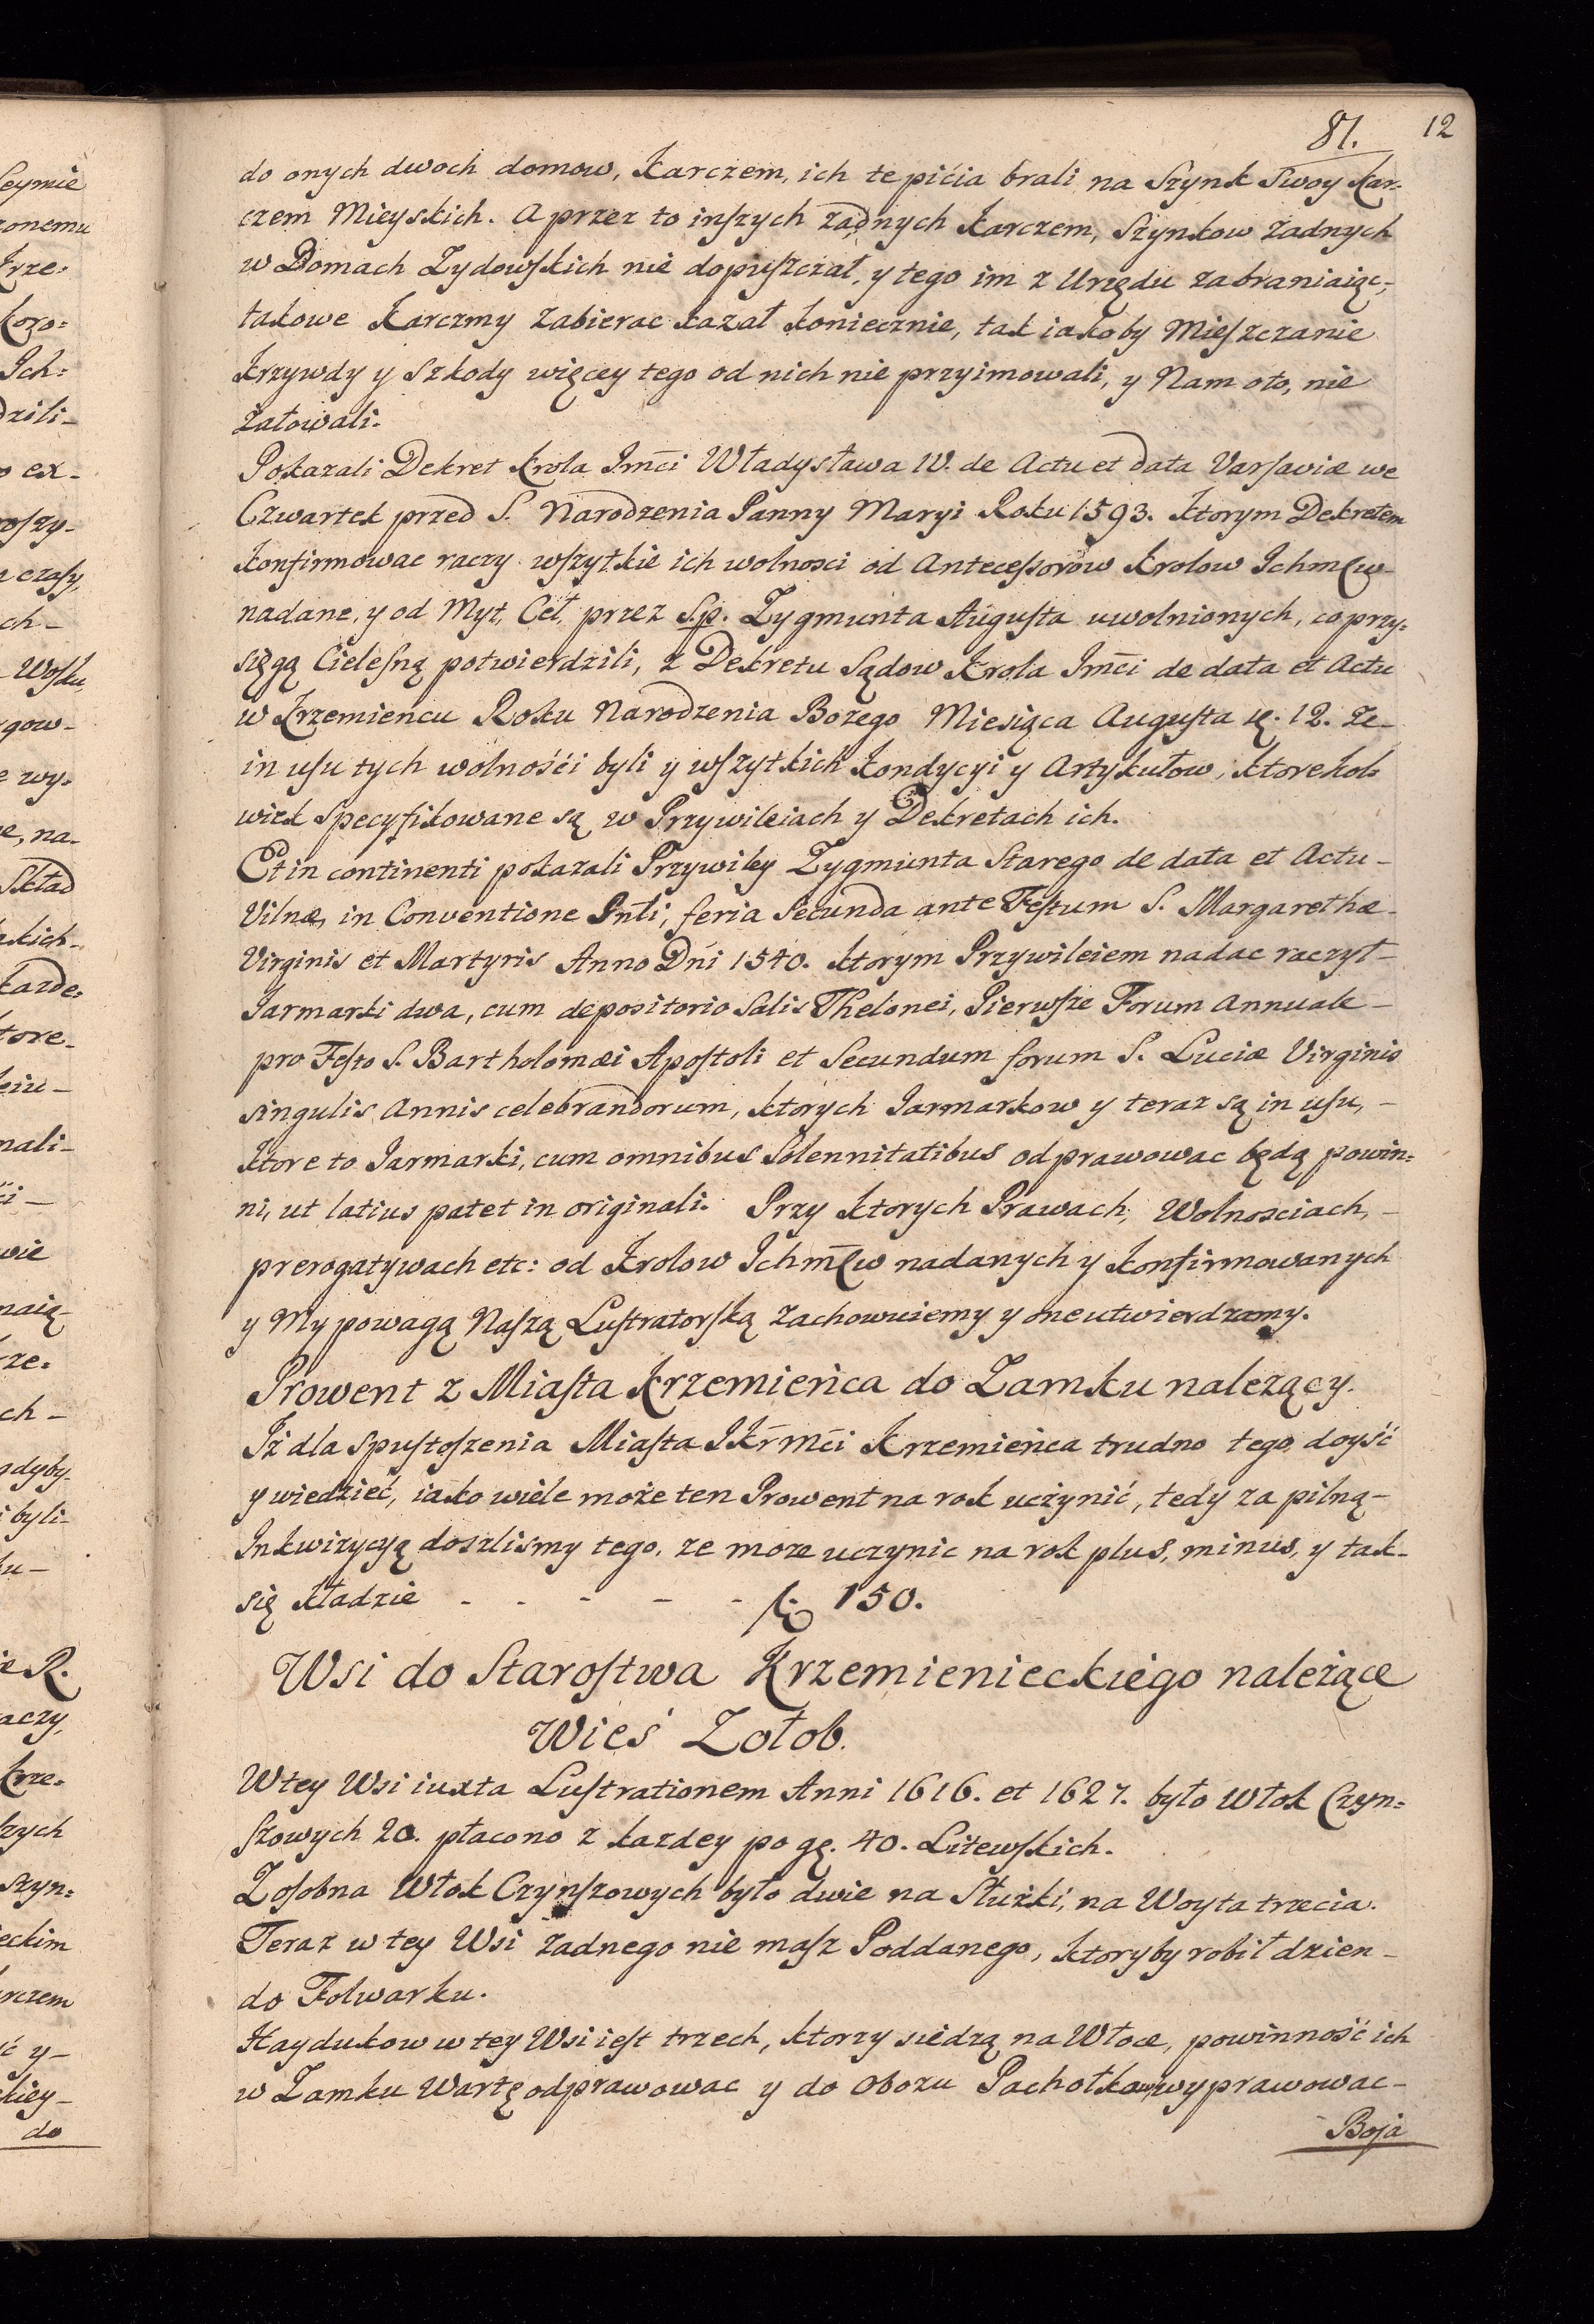 81. 12
do onych dwoch domow, Karczem, ich te pićia brali na Szynk Swoy Kar-
czem Mieyskich. A przez to inſzych żadnych Karczem, Szynkow żadnych
w Domach Zydowſkich nie dopuſzczał, y tego im z Urzędu zabraniaiąc,
takowe Karczmy zabierac kazał koniecznie, tak iakoby Mieſzczanie
Krzywdy y Szkody więcey tego od nich nie przyimowali, y Nam oto, nie
załowali.
Pokazali Dekret Krola Jm̄ci Władysława IV. de Actu et data Varſaviæ we
Czwartek przed S. Narodzenia Panny Maryi Roku 1593. Ktorym Dekretem
konfirmowac raczy wſzytkie ich wolnosci od Anteceſsorow Krolow Ichmćw
nadane, y od Myt, Ceł, przez S.p. Zygmunta Auguſta uwolnionych, co przy=
sięgą Cieleſną potwierdzili, z Dekretu Sądow Krola Jm̄ci de data et Actu
w Krzemieńcu Roku Narodzenia Bożego Miesiąca Auguſta 12. Ze-
in uſu tych wolnośći byli y wſzytkich Kondycyi y Artykułow, ktorekol=
wiek Specyfikowane są w Przywileiach y Dekretach ich.
Et in continenti pokazali Przywiley Zygmunta Starego de data et Actu-
Vilnæ, in Conventione Gn̄li, feria Secunda ante Feſtum S. Margarethæ-
Virginis et Martyris Anno Dn̄i 1540. Ktorym Przywileiem nadac raczył-
Jarmarki dwa, cum depositorio Salis Thelonei, Pierwſze Forum Annuale-
pro Feſto S. Bartholomæi Apoſtoli et Secundum forum S. Luciæ Virginis
singulis Annis celebrandorum, ktorych Jarmarkow y teraz są in uſu,-
Ktore to Jarmarki, cum omnibus Solennitatibus odprawowac będą powin=
ni, ut latius patet in originali. Przy ktorych Prawach, Wolnosciach,-
prerogatywach etc: od Krolow Ichm̄ćw nadanych y konfirmowanych
y My powagą Naſzą Luſtratorſką zachowuiemy y one utwierdzamy.
Prowent z Miaſta Krzemieńca do Zamku należący.
Iż dla Spuſtoſzenia Miaſta JKr̄m̄ci Krzemieńca trudno tego doyść
y wiedzieć, iako wiele może ten Prowent na rok uczynić, tedy za pilną-
Inkwizycyą doszlismy tego, ze moze uczynic na rok plus, minus, y tak-
się kładzie - - - - - fl. 150.
Wsi do Staroſtwa Krzemienieckiego należące
Wieś Zołob.
W tey Wsi iuxta Luſtrationem Anni 1616. et 1627. było Włok Czyn=
ſzowych 20. płacono z kazdey po gę. 40. Litewſkich.
Zoſobna Włok Czynſzowych było dwie na Służki, na Woyta trzecia.
Teraz w tey Wsi żadnego nie maſz Poddanego, ktoryby robił dzien-
do Folwarku.
Haydukow w tey Wsi ieſt trzech, ktorzy siedzą na Włoce, powinność ich
w Zamku Wartę odprawowac y do Obozu Pachołkow wyprawowac-
Boja